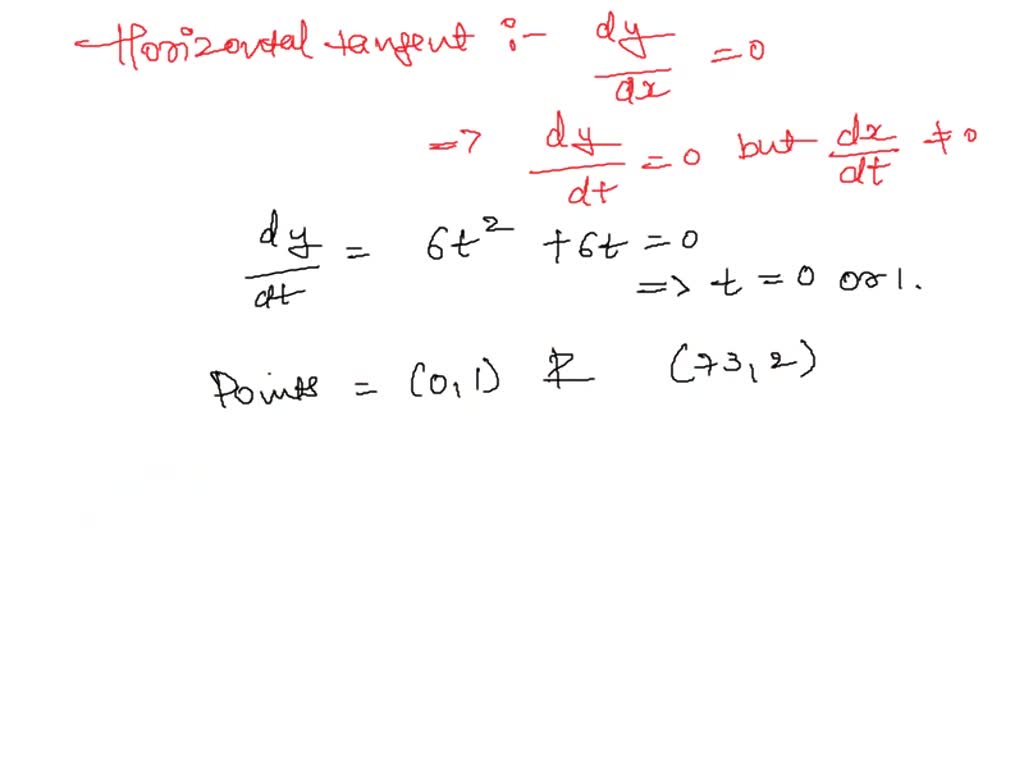 Horizontal tangent :- dy/dx = 0
=> dy/dt = 0 but dx/dt ≠ 0
dy/dt = 6t² + 6t = 0
=> t = 0 or 1.
Points = (0,1) & (73,2)